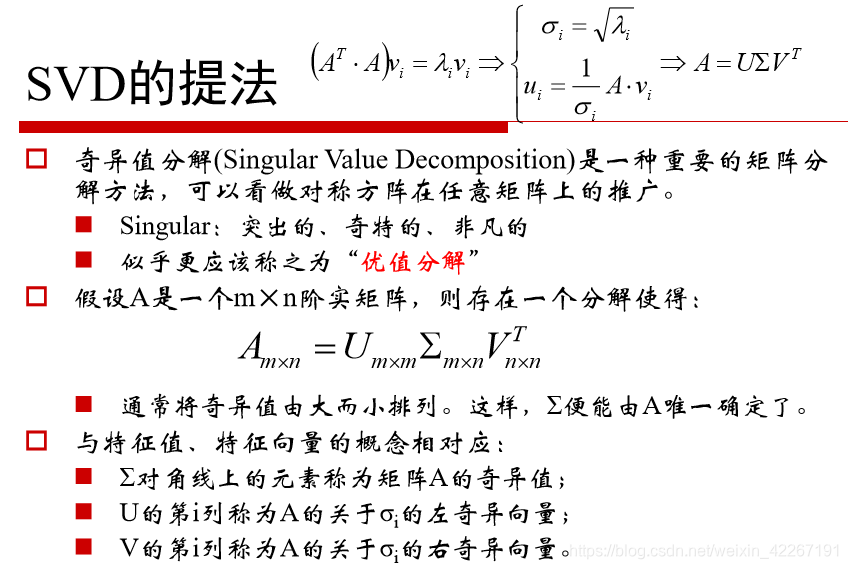 SVD的提法
(Aᵀ · A)vᵢ = λᵢvᵢ ⇒ { σᵢ = √λᵢ
uᵢ = 1/σᵢ A · vᵢ ⇒ A = UΣVᵀ
奇异值分解(Singular Value Decomposition)是一种重要的矩阵分
解方法，可以看做对称方阵在任意矩阵上的推广。
Singular：突出的、奇特的、非凡的
似乎更应该称之为“优值分解”
假设A是一个m×n阶实矩阵，则存在一个分解使得：
Aₘ×ₙ = Uₘ×ₘ Σₘ×ₙ Vᵀₙ×ₙ
通常将奇异值由大而小排列。这样，Σ便能由A唯一确定了。
与特征值、特征向量的概念相对应：
Σ对角线上的元素称为矩阵A的奇异值；
U的第i列称为A的关于σᵢ的左奇异向量；
V的第i列称为A的关于σᵢ的右奇异向量。
https://blog.csdn.net/weixin_42267191